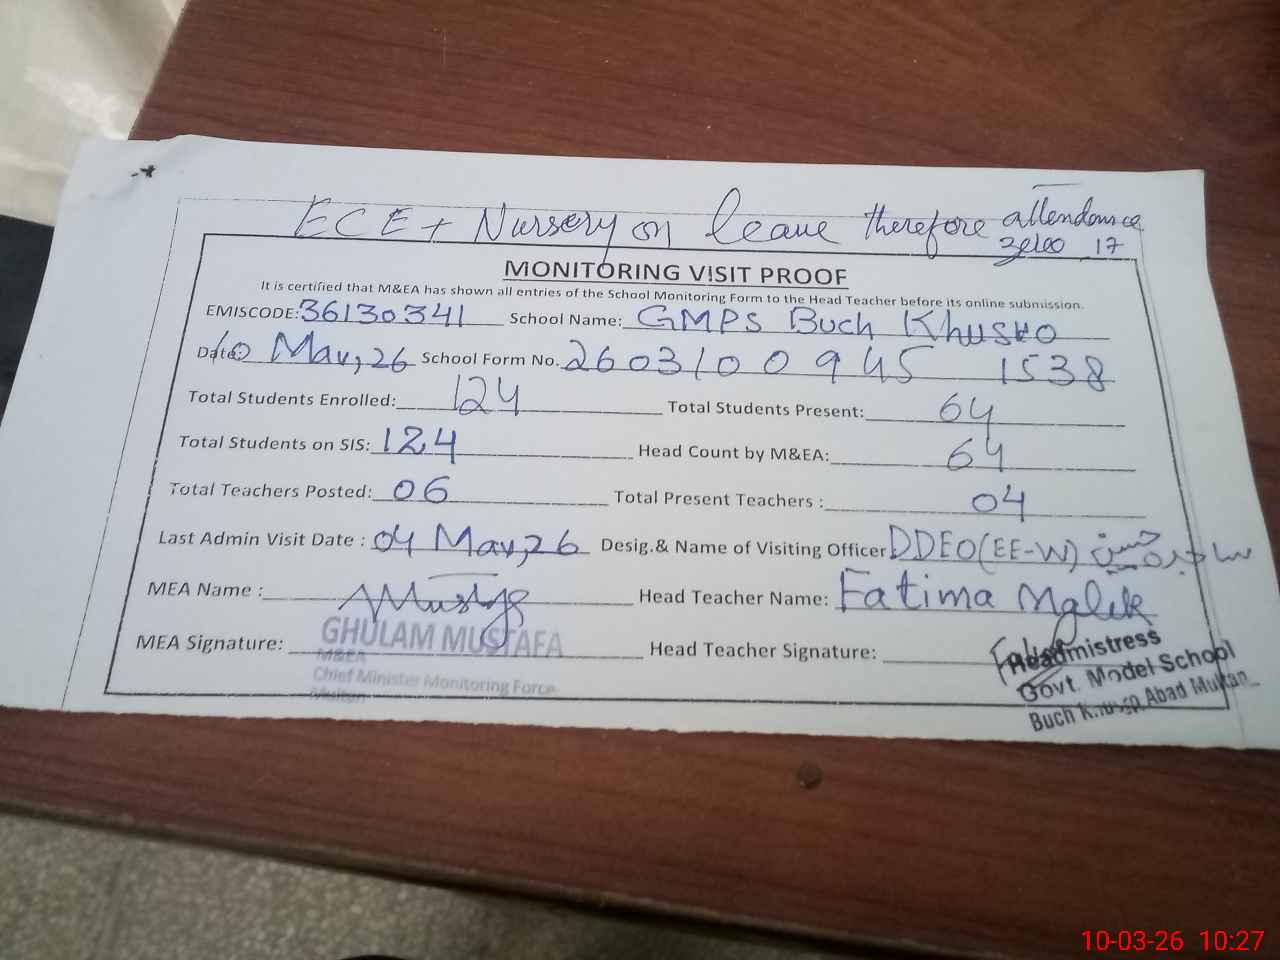 ECE + Nursery on leave therefore attendance
zero 17
MONITORING VISIT PROOF
It is certified that M&EA has shown all entries of the School Monitoring Form to the Head Teacher before its online submission.
EMISCODE: 36130341 School Name: GMPS Buch Khusro
Date: 10 Mar, 26 School Form No. 2603100945 1538
Total Students Enrolled: 124 Total Students Present: 64
Total Students on SIS: 124 Head Count by M&EA: 64
Total Teachers Posted: 06 Total Present Teachers : 04
Last Admin Visit Date : 04 Mar, 26 Desig.& Name of Visiting Officer DDEO(EE-W) حسین
MEA Name : Head Teacher Name: Fatima Malik
MEA Signature: Head Teacher Signature:
GHULAM MUSTAFA
M&EA
Chief Minister Monitoring Force
Multan
Headmistress
Govt. Model School
Buch Abad Multan
10-03-26 10:27